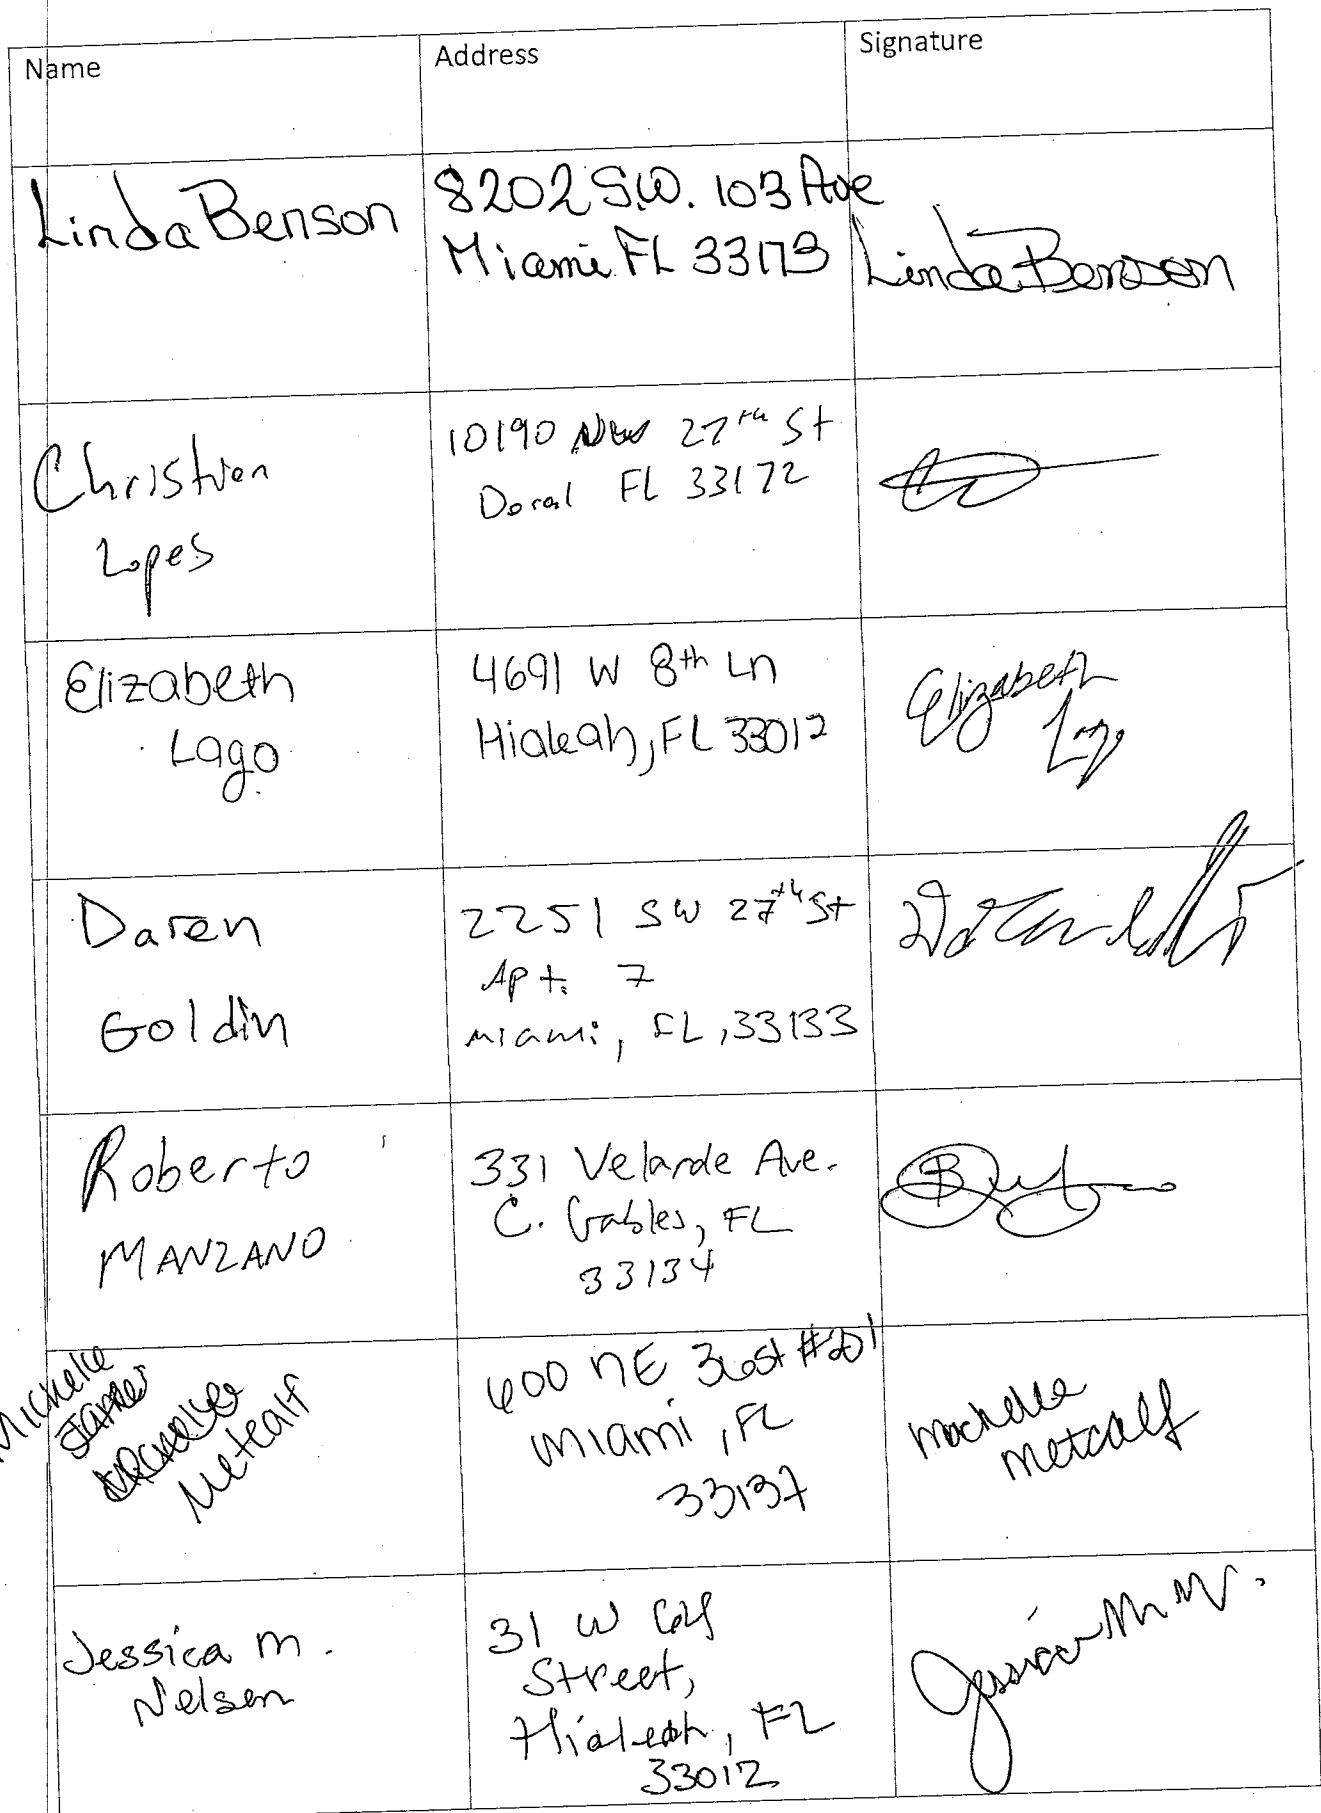 Name
Address
Signature
Linda Benson
8202 S.W. 103 Ave
Miami FL 33173
Linda Benson
Christian
Lopes
10190 NW 27th St
Doral FL 33172
Elizabeth
Lago
4691 W 8th Ln
Hialeah, FL 33012
Elizabeth
Lago
Daren
Goldin
2251 SW 27th St
Apt. 7
Miami, FL, 33133
Roberto
MANZANO
331 Velarde Ave.
C. Gables, FL
33134
Michelle
Metcalf
600 NE 36st #201
Miami, FL
33137
Michelle
Metcalf
Jessica M.
Nelsen
31 W
Street,
Hialeah, FL
33012
Jessica M